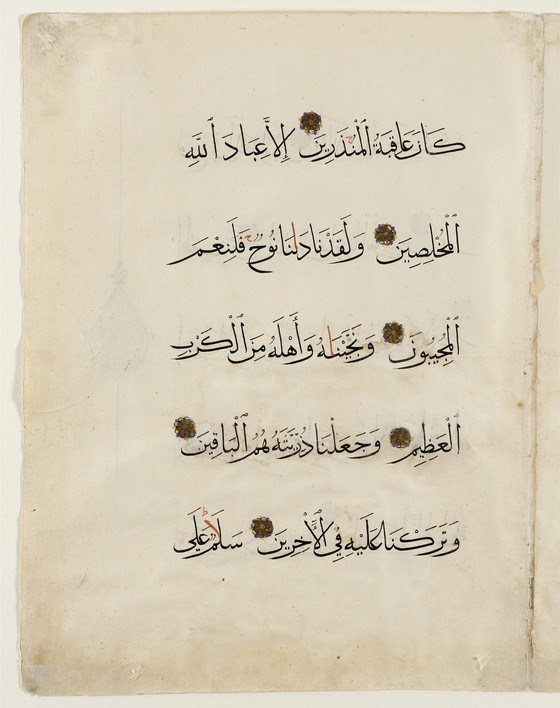 كَانَ عَاقِبَةُ ٱلْمُنْذَرِينَ إِلَّا عِبَادَ ٱللَّهِ
ٱلْمُخْلَصِينَ وَلَقَدْ نَادَىٰنَا نُوحٌ فَلَنِعْمَ
ٱلْمُجِيبُونَ وَنَجَّيْنَٰهُ وَأَهْلَهُ مِنَ ٱلْكَرْبِ
ٱلْعَظِيمِ وَجَعَلْنَا ذُرِّيَّتَهُ هُمُ ٱلْبَاقِينَ
وَتَرَكْنَا عَلَيْهِ فِي ٱلْأَخِرِينَ سَلَٰمٌ عَلَى